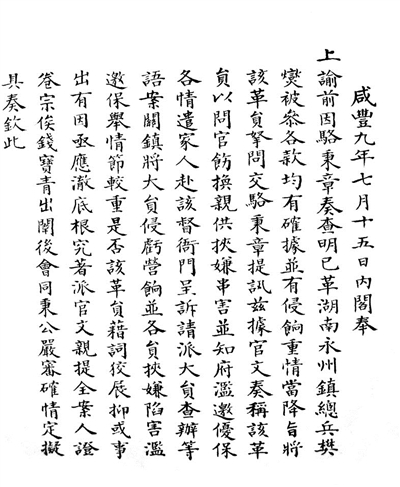 咸豐九年七月十五日內閣奉
上諭前因駱秉章奏查明已革湖南永州鎮總兵樊
燮被參各款均有確據並有侵餉重情當降旨將
該革員拏問交駱秉章提訊茲據官文奏稱該革
員以問官飭換親供挾嫌串害並知府濫邀優保
各情遣家人赴該督衙門呈訴請派大員查辦等
語案關鎮將大員侵虧營餉並各員挾嫌陷害濫
邀保舉情節較重是否該革員藉詞狡展抑或事
出有因亟應澈底根究著派官文親提全案人證
卷宗俟錢寶青出闈後會同秉公嚴審確情定擬
具奏欽此